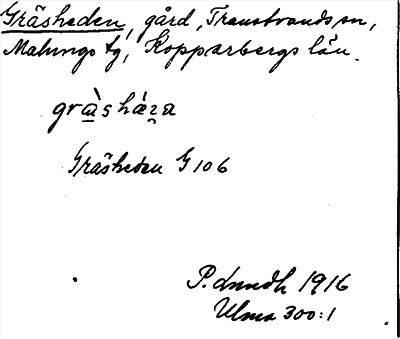 Gräsheden, gård, Transtrands sn,
Malungs tg, Kopparbergs län.
Gräsheden G 106
P. Lundh 1916
Ulma 300:1